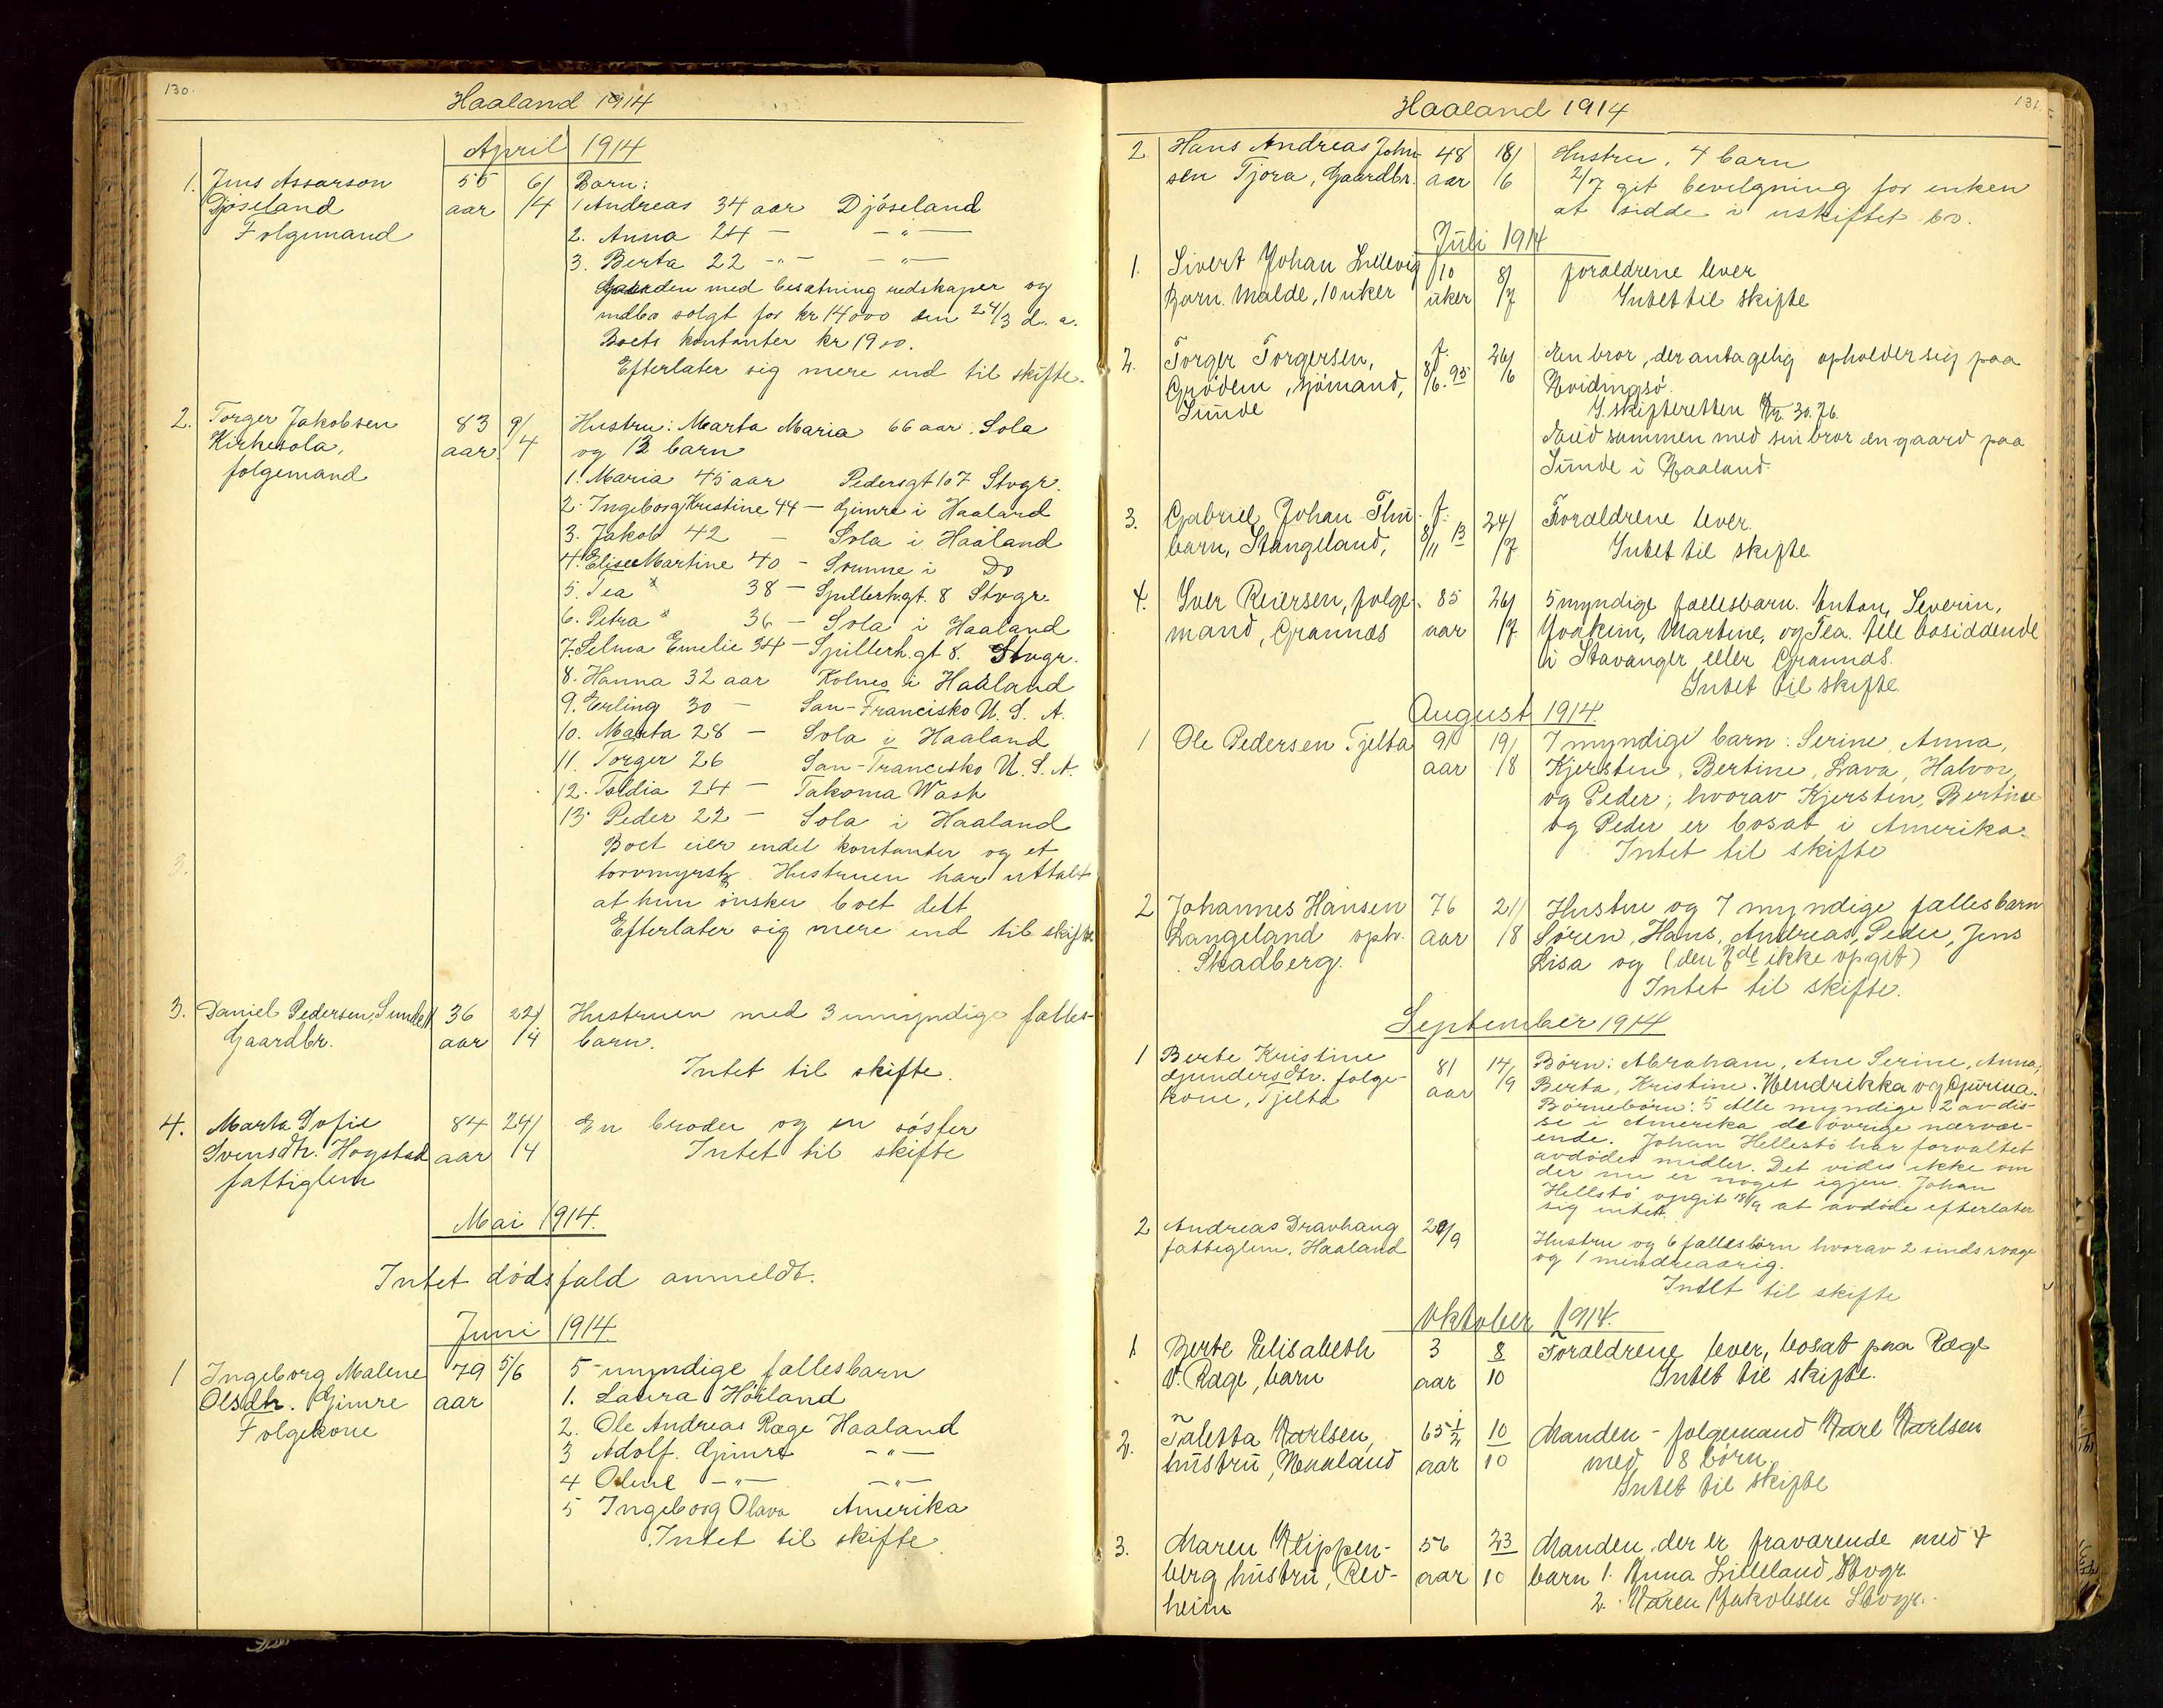 130.
Haaland 1914
April 1914
1. Jens Assarson 55 6/ Barn:
Djøseland aar /4 1 Andreas 34 aar Djøseland
Folgemand 2. Anna 24 — — " —
3. Berta 22 - " - — " —
Gaarden med besætning redskaper og
indbo solgt for kr 14000 den 24/3 d. a.
Boets kontanter kr 1900.
Efterlater sig mere end til skifte.
2. Torger Jakobsen 83 9/ Hustru: Marta Maria 66 aar. Sola
Kirkesola, aar. /4 og 13 barn
folgemand 1. Maria 45 aar Pedersgt 107 Stvgr.
2. Ingeborg Kristine 44 — Gimre i Haaland
3. Jakob 42 — Sola i Haaland
4. Elise Martine 40 — Sømme i Do
5. Tea " 38 — Spillerh.gt. 8 Stvgr.
6. Petra " 36 — Sola i Haaland
7. Selma Emelie 34 — Spillerh.gt 8. Stvgr.
8. Hanna 32 aar Kolnes i Haaland
9. Erling 30 — San-Francisko U. S. A.
10. Marta 28 — Sola i Haaland
11. Torger 26 San-Francisko U. S. A.
12. Toldia 24 — Takoma Wash
13 Peder 22 — Sola i Haaland
Boet eier endel kontanter og et
torvmyrstk. Hustruen har uttalt
at hun ønsker boet delt
Efterlater sig mere end til skifte
3.
3. Daniel Pedersen, Sunde 36 22/ Hustruen med 3 umyndige fælles-
Gaardbr. aar /4 barn.
Intet til skifte.
4. Marta Sofie 84 24/ En broder og en søster
Svensdtr. Hogstad aar /4 Intet til skifte
fattiglem
Mai 1914.
Intet dødsfald anmeldt.
Juni 1914.
1 Ingeborg Malene 79 5/6 5 myndige fællesbarn
Olsdtr. Gimre aar 1. Laura Hørland
Folgekone 2. Ole Andreas Ræge Haaland
3 Adolf. Gimre — " —
4 Oline — " — — " —
5 Ingeborg Olava Amerika
Intet til skifte
131.
Haaland 1914
2 Hans Andreas John- 48 18/ Hustru, 4 barn
sen Tjora, Gaardbr. aar /6 2/7 git bevilgning for enken
at sidde i uskiftet bo.
Juli 1914
1. Sivert Johan Lillevig 10 8/ forældrene lever
Barn. Malde, 10 uker uker /7 Intet til skifte
2. Torger Torgersen, f. 26/ En bror, der antagelig opholder sig paa
Grødem, sjømand, 8/6. 95 /6 Hvidingsø.
Sunde I skifteretten kr. 30.76.
Eied sammen med sin bror en gaard paa
Sunde i Haaland.
3. Gabriel Johan Thu f. 24/ Forældrene lever.
barn, Stangeland, 8/11 13 /7 Intet til skifte
4. Iver Reiersen, folge- 85 26/ 5 myndige fællesbarn. Anton, Severin,
mand, Grannes aar /7 Joakim, Martine, og Tea. Alle bosiddende
i Stavanger eller Grannes.
Intet til skifte.
August 1914.
1 Ole Pedersen Tjelta 91 19/ 7 myndige barn: Serine, Anna,
aar /8 Kjersten, Bertine, Lava, Halvor,
og Peder, hvorav Kjersten, Bertine
og Peder er bosat i Amerika.
Intet til skifte
2 Johannes Hansen 76 21/ Hustru og 7 myndige fællesbarn
Langeland oph. aar /8 Søren, Hans, Andreas, Peder, Jens
Skadberg. Lisa og (den 7de ikke opgit)
Intet til skifte.
September 1914
1 Berte Kristine 81 14/ Børn: Abraham, Ane Serine, Anna,
Gundersdtr. folge- aar /9 Berta, Kristine. Hendrikka og Gurina.
kone, Tjelta Børnebørn: 5 Alle myndige. 2 av dis-
se i Amerika de øvrige nærvær-
ende. Johan Hellestø har forvaltet
avdødes midler. Det vides ikke om
der nu er noget igjen. Johan
Hellstø opgit 18/9 at avdøde efterlater
sig intet.
2 Andreas Dravhaug 29/9 Hustru og 6 fællesbørn hvorav 2 sindssvage
fattiglem, Haaland og 1 mindreaarig.
Intet til skifte
Oktober 1914.
1 Berte Elisabeth 3 8 Forældrene lever, bosat paa Ræge
v. Ræge, barn aar 10 Intet til skifte.
2. Taletta Karlsen, 65 1/2 10 Manden - folgemand Karl Karlsen
hustru, Haaland aar 10 med 8 børn.
Intet til skifte
3. Maren Klippen- 56 23 Manden, der er fraværende med 4
berg hustru, Rev- aar 10 barn 1. Anna Lilleland, Stvgr.
heim 2. Karen Jakobsen Stvgr.